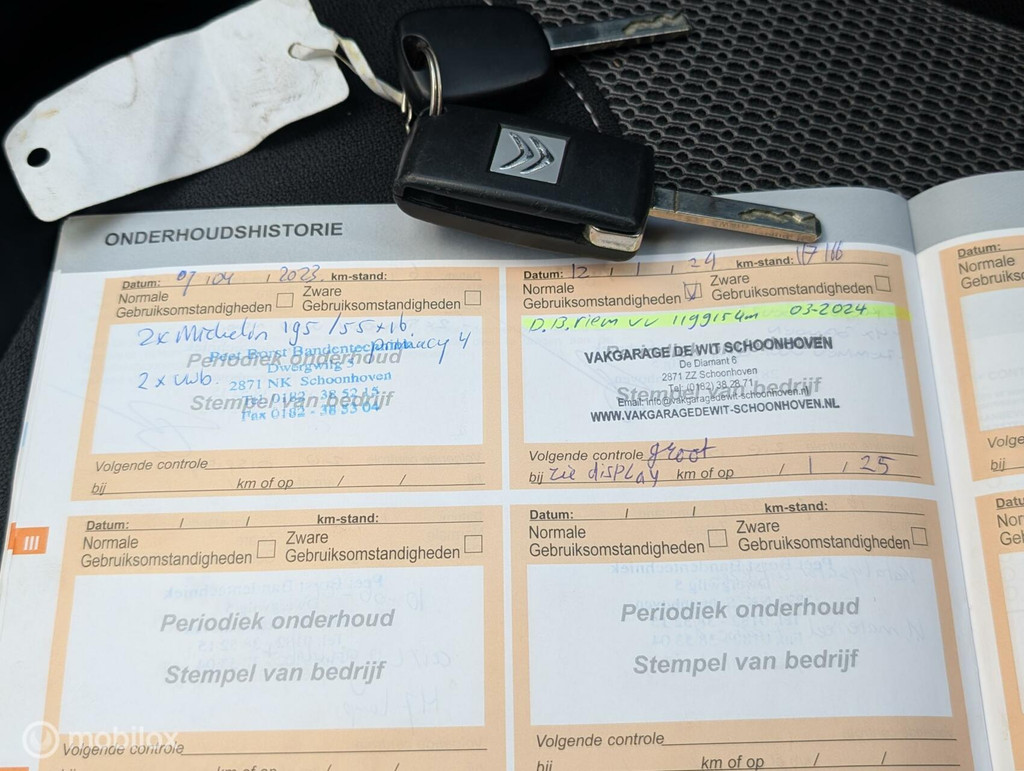 ONDERHOUDSHISTORIE
Datum: 07 / 04 / 2023 km-stand:
Normale Gebruiksomstandigheden
Zware Gebruiksomstandigheden
2x Michelin 195/55x16
Primacy 4
2x uwb.
Periodiek onderhoud
Peet Borst Bandentechniek
Dwergwilg 3
2871 NK Schoonhoven
Stempel van bedrijf
Tel. 0182 - 38 52 15
Fax 0182 - 38 53 04
Volgende controle
bij km of op / /
Datum: 12 / 1 / 24 km-stand:
Normale Gebruiksomstandigheden
Zware Gebruiksomstandigheden
D.B.riem vv 119915 km 03-2024
VAKGARAGE DE WIT SCHOONHOVEN
De Diamant 6
2871 ZZ Schoonhoven
Tel: (0182) 38 28 71
Stempel van bedrijf
Email: info@vakgaragedewit-schoonhoven.nl
WWW.VAKGARAGEDEWIT-SCHOONHOVEN.NL
Volgende controle groot
bij zie display km of op / 1 / 25
Datum:
Normale
Gebruiks
Volge
bij
III
Datum: / / km-stand:
Normale Gebruiksomstandigheden
Zware Gebruiksomstandigheden
Periodiek onderhoud
Stempel van bedrijf
Volgende controle
km of op / /
Datum: / / km-stand:
Normale Gebruiksomstandigheden
Zware Gebruiksomstandigheden
Periodiek onderhoud
Stempel van bedrijf
Volgende controle
bij km of op / /
mobilox